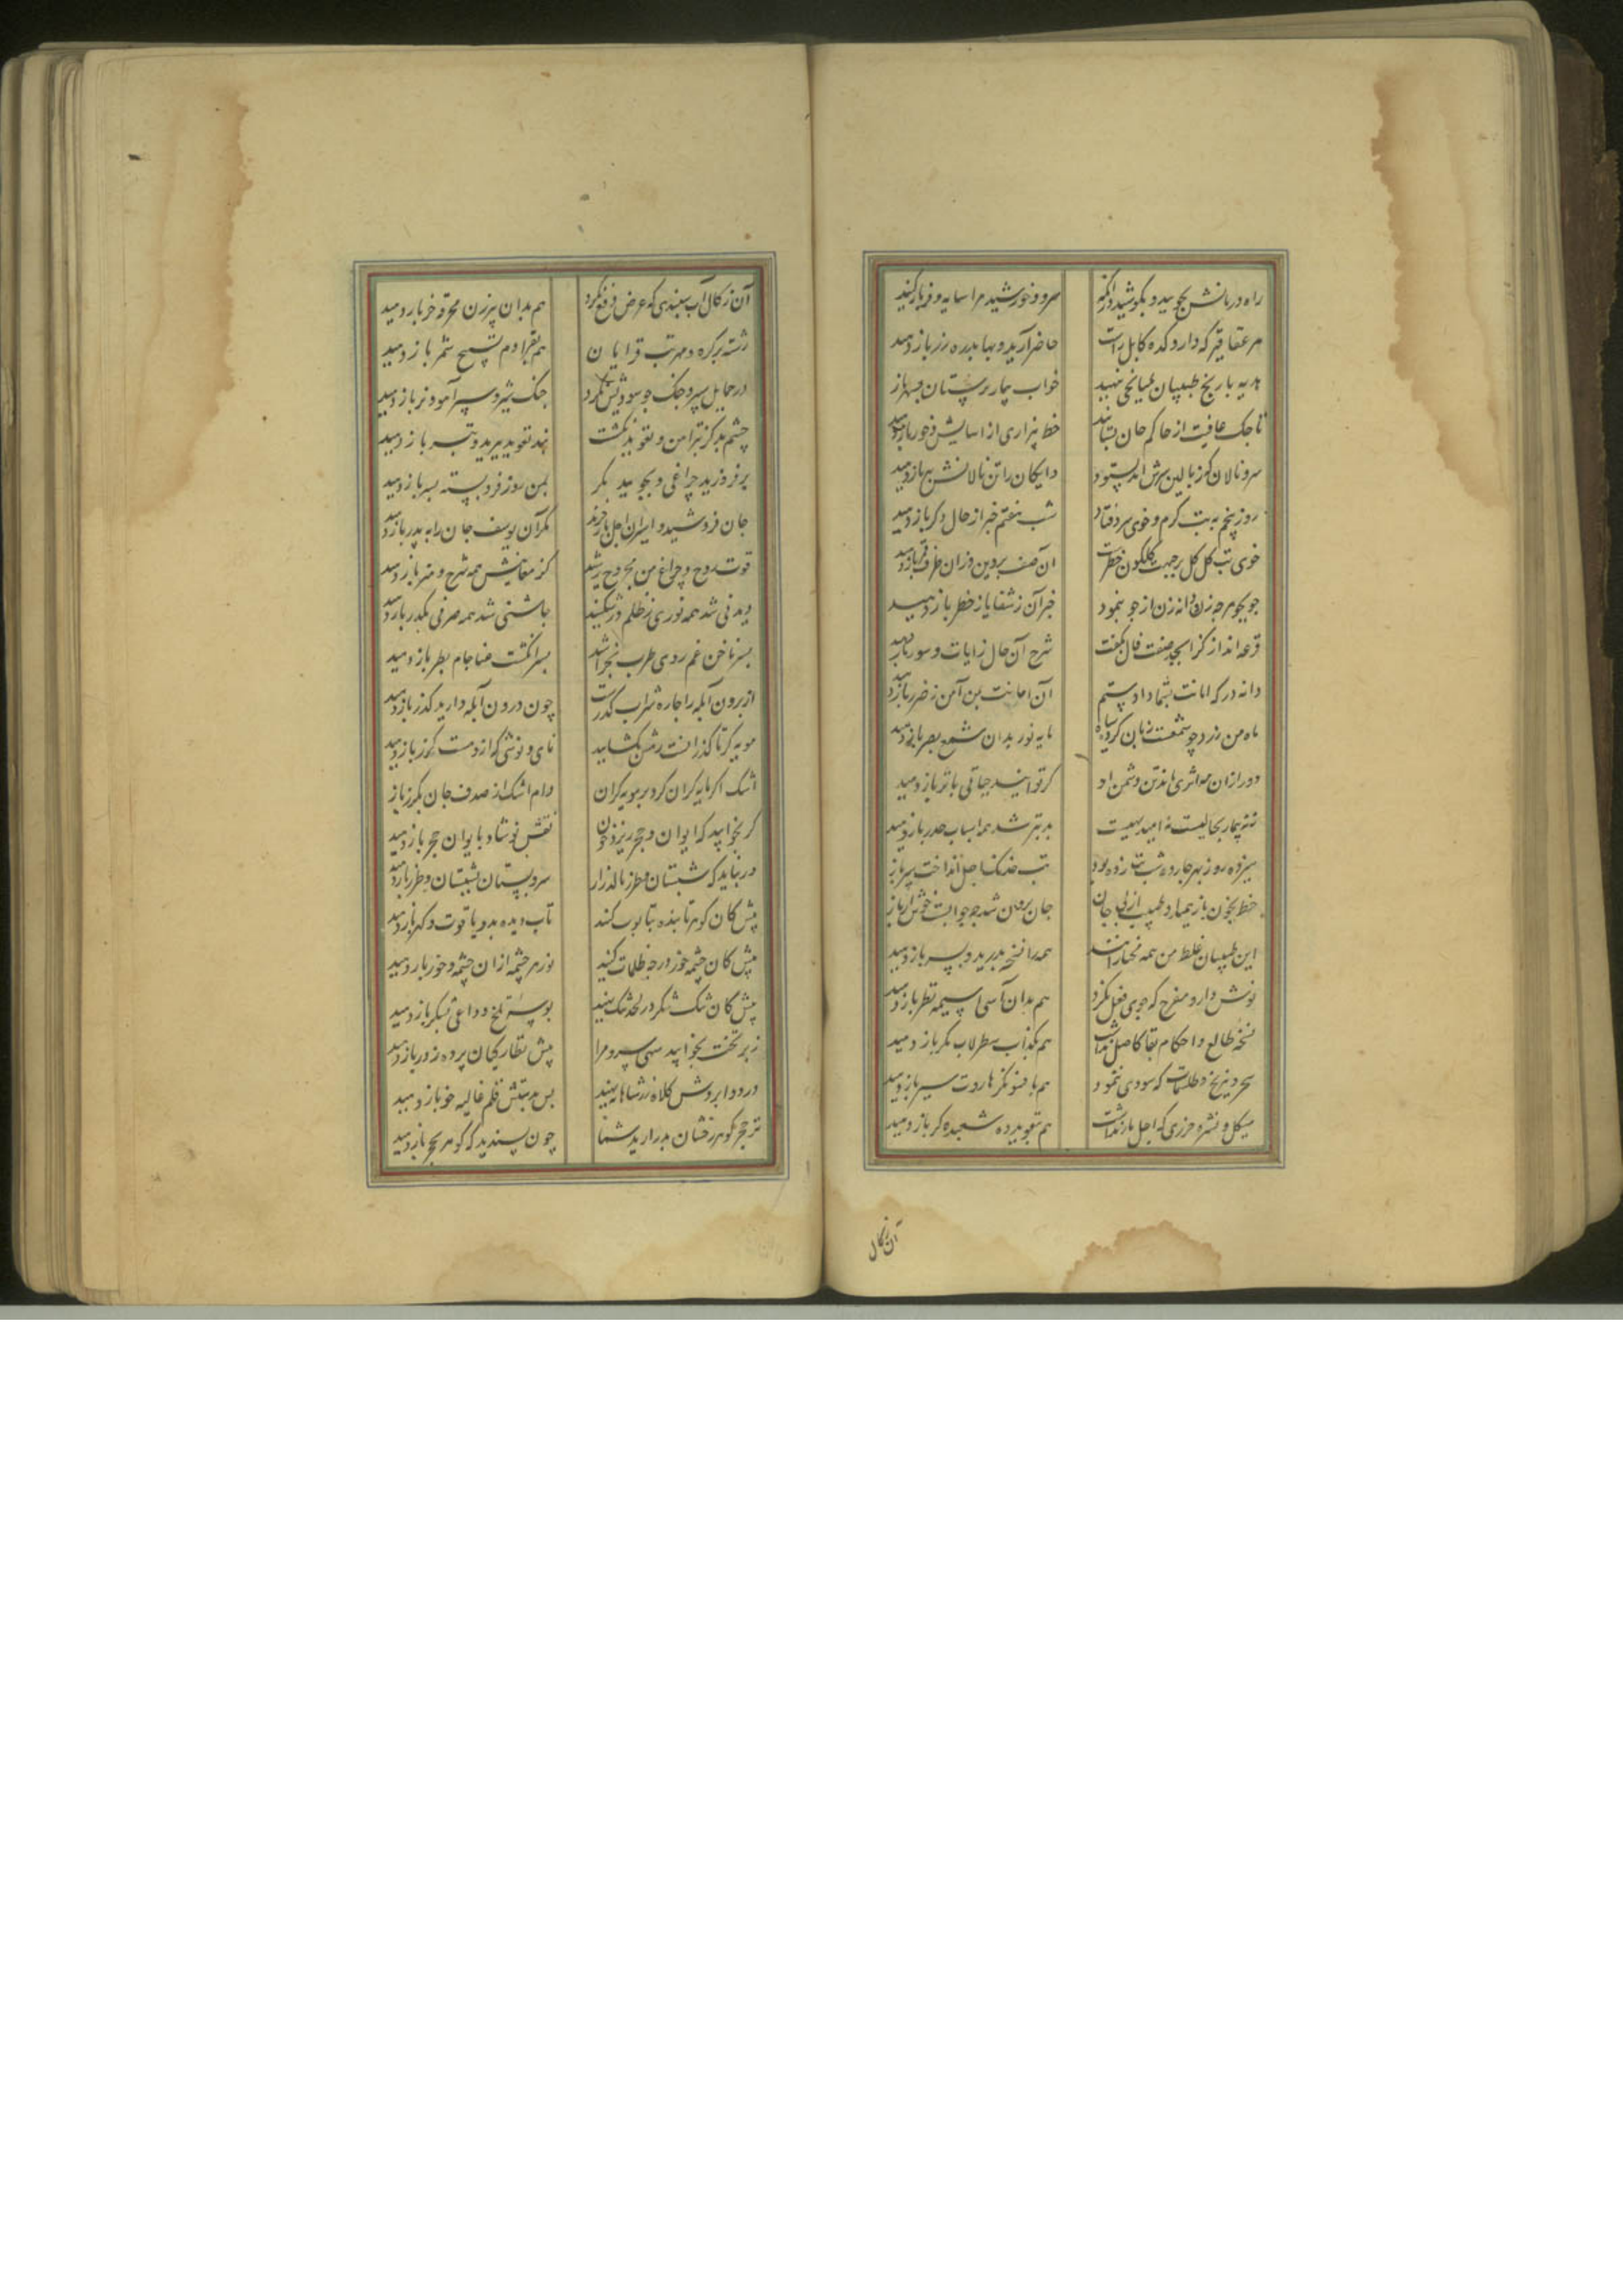 راه درمانش بجویید و بکوشید در آنکه سرو و خورشید مرا سایه و فر باز کنید
هر عقاقیر که دارو کده کابل راست حاضر آرید و بها بدره زر باز دهید
هدیه پا رنج طبیبان بمیانجی بنهید خواب بیمار پرستان بسهر باز
تا چک عافیت از حاکم جان بستانید خط بیزاری از آسایش و خور باز دهید
سرو نالان کز بالین سرش آمد بستوه دایگان را تن نالانش ببر باز دهید
روز پنجم به تب گرم و خوی سرد فتاد شب هفتم خبر از حال دگر باز دهید
خوی تب کل کل بر جبهت گلگون خطر است آن صف پروین زان طرف قمر باز دهید
جو بجو هر چه زن دانه زن از جو بنمود خبر آن ز شفا یا ز خطر باز دهید
قرعه انداز کز ابجد صفت فال بگفت شرح آن فال ز آیات و سور باز دهید
دانه در که امانت بشما دادستم آن امانت بمن آمن ز ضرر باز دهید
ماه من زرد چو شمعست زبان کرده سیاه مایه نور بدان شمع بصر باز دهید
دور از آن مه اثری ماند تن دشمن او گر توانید حیاتی باثر باز دهید
تن بیمار بحالیست نه امید بهیست بدتر شد همه اسباب حذر باز دهید
سیزده روز مه چارده شب تب زده بود تب خدنگ اجل انداخت سپر باز
خط بخون باز همی داد طبیب از پی جان جان برون شد چه جوابست خوش ار باز
این طبیبان غلط من همه محتالانند همه را نسخه بدرید و بسر باز دهید
نوش دارو مفرح که جوی فعل نکرد هم بدان آسی آسیمه نظر باز دهید
نسخه طالع و احکام بقا کاصل نداشت هم بکذاب سطرلاب نگر باز دهید
سحر و نیرنج و طلسمات که سودی ننمود هم بافسونگر هاروت سیر باز دهید
هیکل و نشره و حرزی که اجل باز نداشت هم بتعوید ده شعبده گر باز دهید
آن زکال
آن زکال آب سپندی که عرض دفع نکرد هم بدان پیرزن مخرقه خر باز دهید
رشته پر گره و مهر تب قرایان هم بقرا دم تسبیح شمر باز دهید
در حمایل سپر و جنگ چو سودیش نکرد جنگ شیر و سپر آمود بزر باز دهید
چشم بد کز تبر امن و تعوید نگشت بند تعوید ببرید و تبر باز دهید
بر فروزید چراغی و بجویید مگر بمن روز فرو بسته بسر باز دهید
جان فروشید و اسیران اجل باز خرید مگر آن یوسف جان را به پدر باز دهید
قوت روح و چراغ من مجروح رشید کز معانیش همه شرح و هنر باز دهید
دیدنی شد همه نوری بظلم در شکنید چاشنی شد همه صرفی بکدر باز دهید
بسر ناخن غم روی طرب بخراشید بسر انگشت عنا جام بطر باز دهید
از برون آبله را چاره شراب کدر است چون درون آبله دارید کدر باز دهید
مویه گر ناگذرانست رهش بگشایید نای و نوشی که ازو هست گذر باز دهید
اشک اگر مایه گران کرد بر مویه گران وام اشک از صدف جان بگهر باز
گر نخواهید که ایوان و حجر ریزد خون نقش نوشاد بایوان و حجر باز دهید
ور نباید که شبستان و طزر نالد زار سرو بستان بشبستان و طزر باز دهید
پیش کان گوهر تابنده بتابوت کنند تاب دیده بدو یاقوت و گهر باز دهید
پیش کان چشمه خور در چه ظلمات کنند نور هر چشمه از آن چشمه و خور باز دهید
پیش کان تنگ شکر در لحد تنگ نهید بوسه تلخ وداعی بشکر باز دهید
زبر تخت بخوابید سهی سرو مرا پیش نظارگیان پرده ز در باز دهید
در دو ابروش کلاه زر شاهانه نهید پس بدستش قلم غالیه خور باز دهید
نز حجر گوهر رخشان بدر آرید شما چون پسندید که گوهر بحجر باز دهید